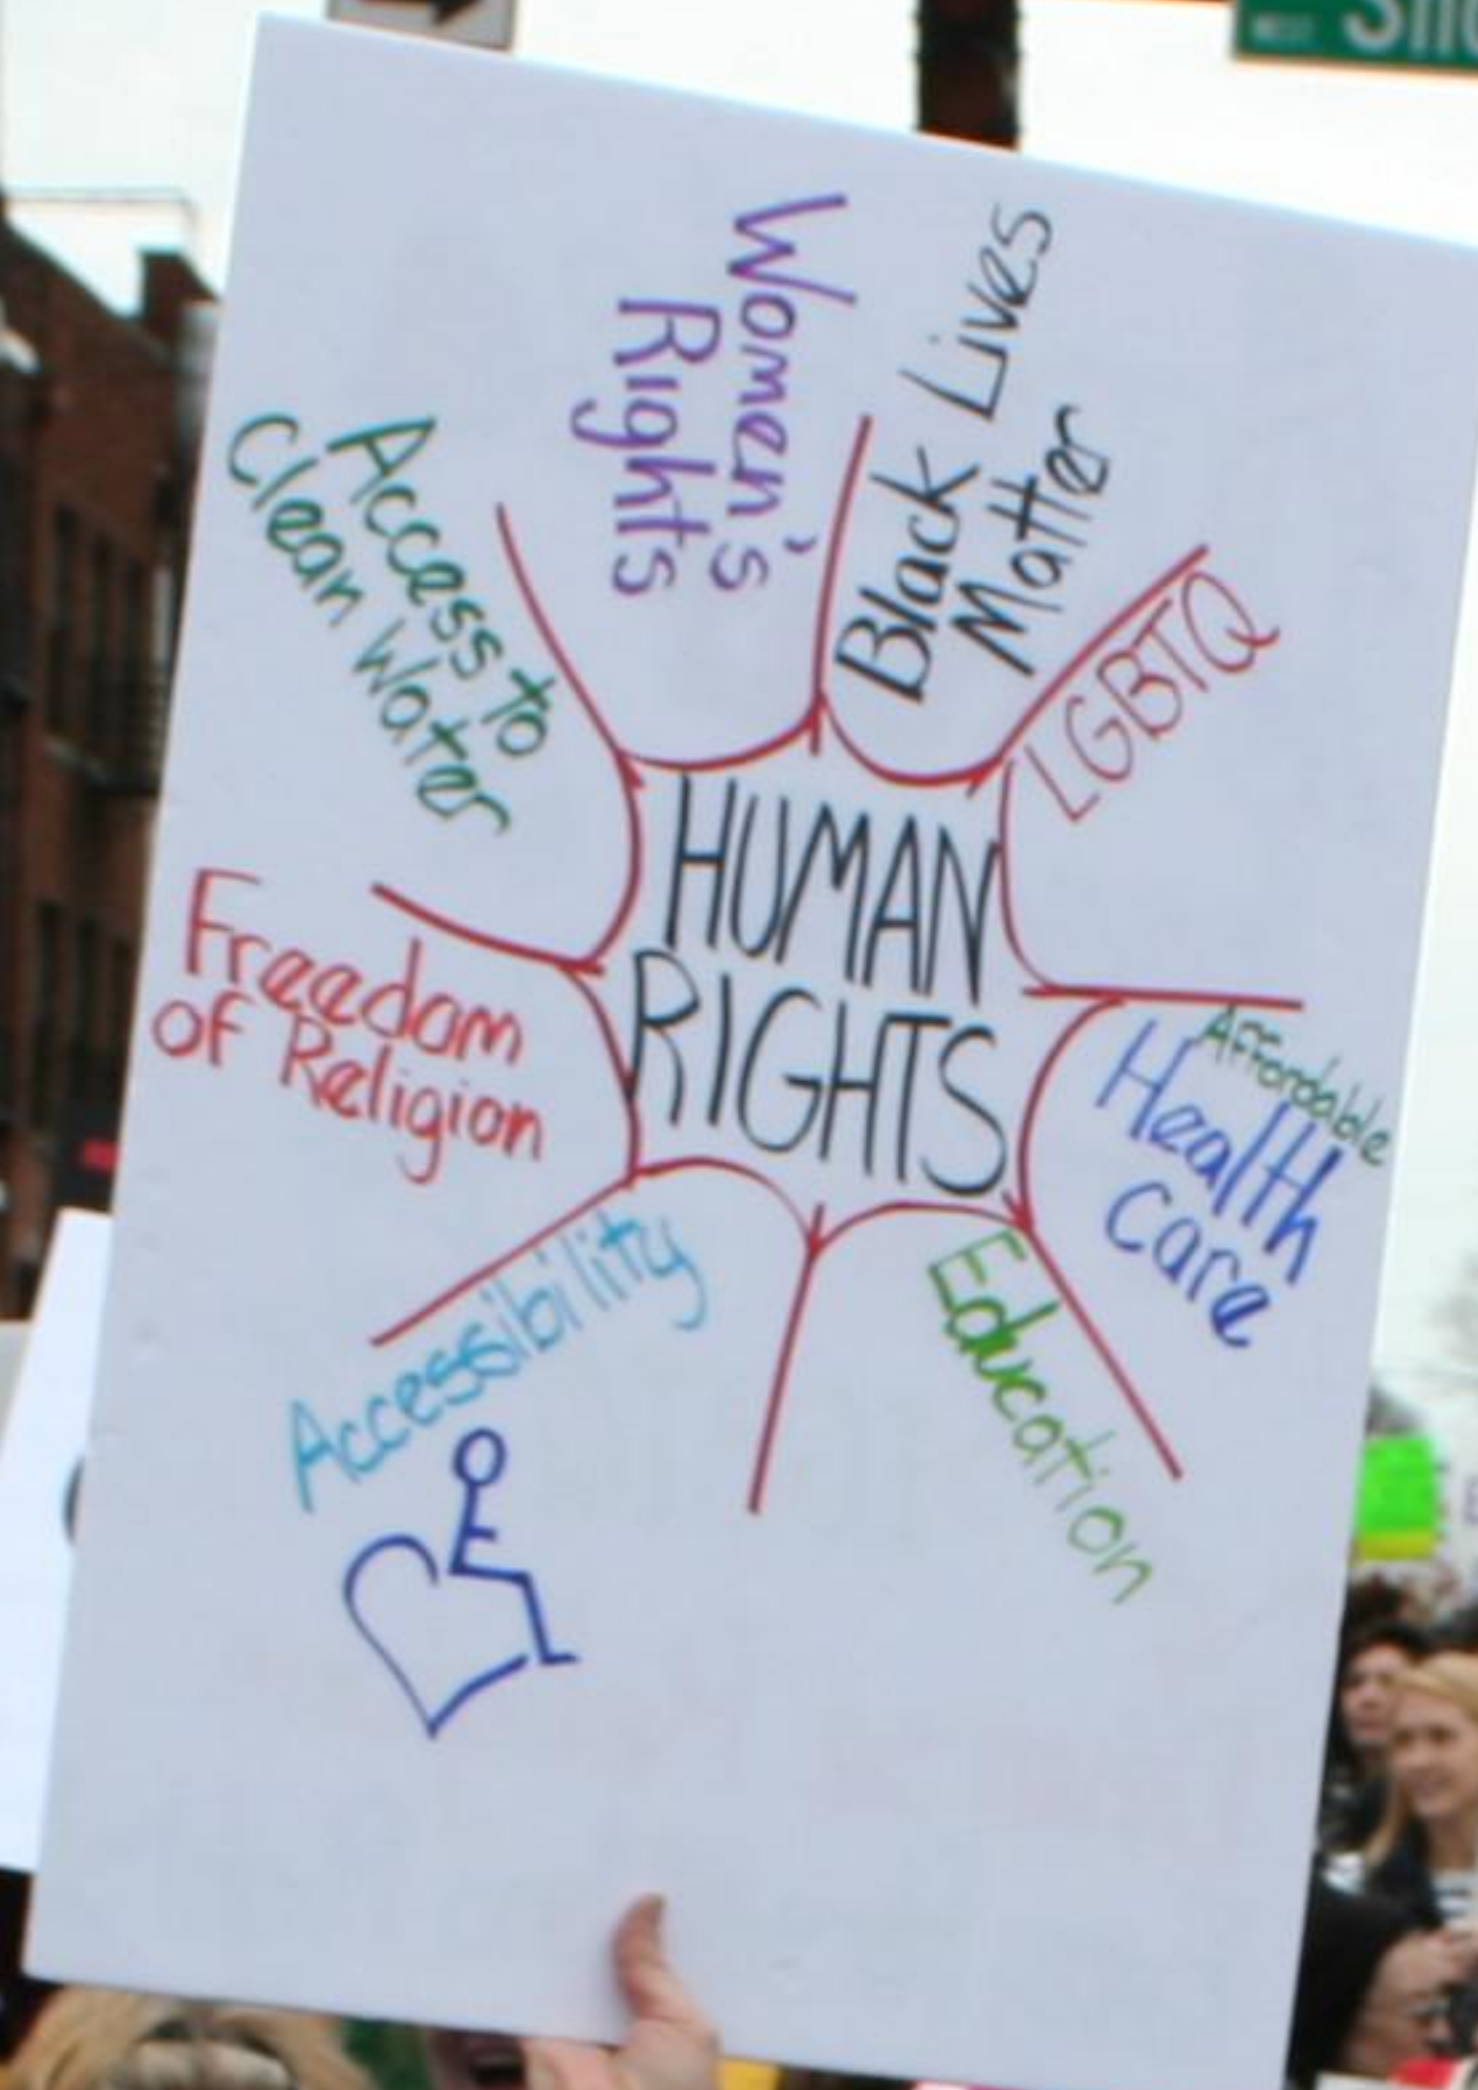 Women's
Rights
Black Lives
Matter
LGBTQ
Affordable
Health
Care
Education
Accessibility
Freedom
of Religion
Access to
Clean Water
HUMAN
RIGHTS